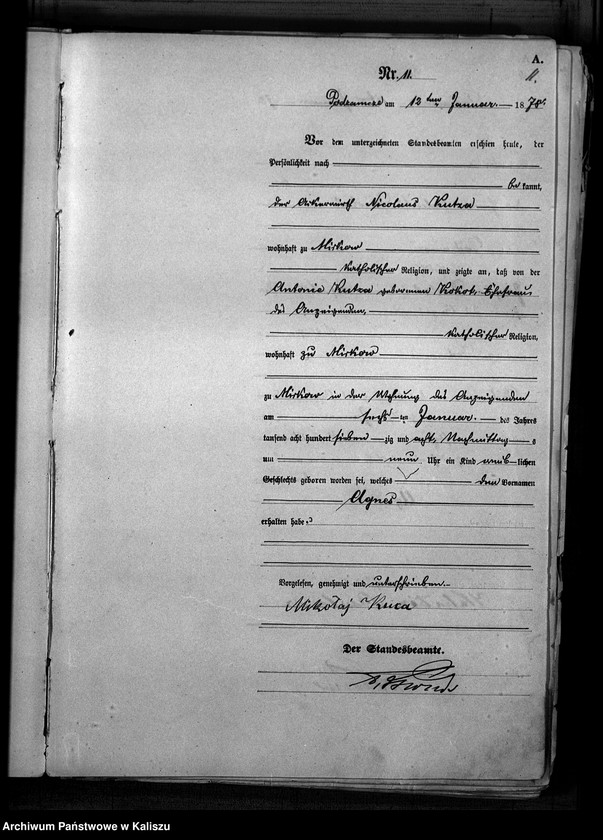 A.
Nr. 11.
11.
Podzamcze am 12 ten Januar. 1878.
Vor dem unterzeichneten Standesbeamten erschien heute, der
Persönlichkeit nach
be kannt,
der Ackerwirth Nicolaus Kutza
wohnhaft zu Mirkow
katholischer Religion, und zeigte an, daß von der
Antonie Kutza geborenen Kokot, Ehefrau
des Anzeigenden,
katholischer Religion,
wohnhaft zu Mirkow
zu Mirkow in der Wohnung des Anzeigenden
am sechs ten Januar. des Jahres
tausend acht hundert sieben zig und acht, Nachmittag s
um neun Uhr ein Kind weib lichen
Geschlechts geboren worden sei, welches den Vornamen
Agnes
erhalten habe.
Vorgelesen, genehmigt und unterschrieben.
Mikołaj Kuca
Der Standesbeamte.
Archiwum Państwowe w Kaliszu